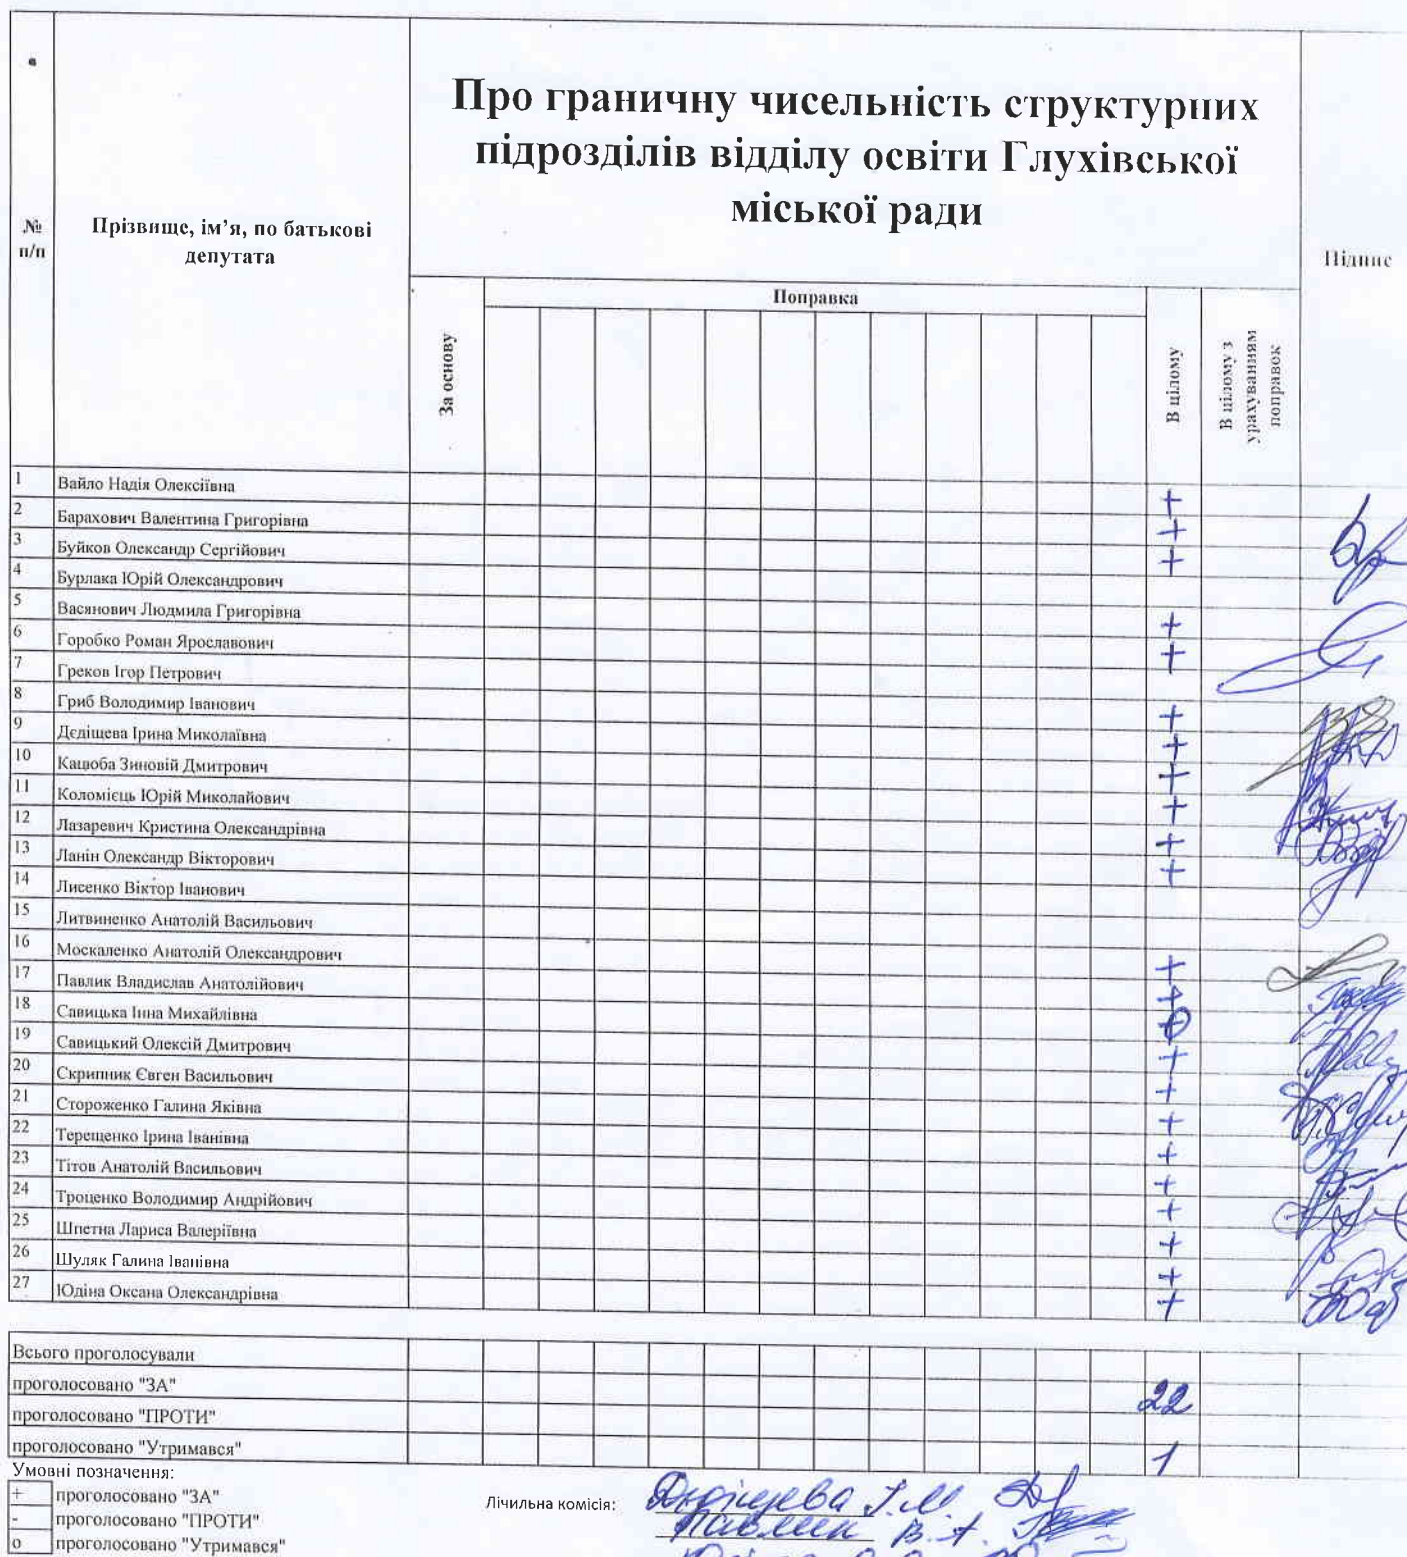 № п/п
Прізвище, ім’я, по батькові депутата
Про граничну чисельність структурних
підрозділів відділу освіти Глухівської
міської ради
Підпис
За основу
Поправка
В цілому
В цілому з урахуванням поправок
1 Вайло Надія Олексіївна +
2 Барахович Валентина Григорівна +
3 Буйков Олександр Сергійович +
4 Бурлака Юрій Олександрович
5 Васянович Людмила Григорівна +
6 Горобко Роман Ярославович +
7 Греков Ігор Петрович
8 Гриб Володимир Іванович +
9 Дєдіщева Ірина Миколаївна +
10 Кацюба Зиновій Дмитрович +
11 Коломієць Юрій Миколайович +
12 Лазаревич Кристина Олександрівна +
13 Ланін Олександр Вікторович +
14 Лисенко Віктор Іванович
15 Литвиненко Анатолій Васильович
16 Москаленко Анатолій Олександрович +
17 Павлик Владислав Анатолійович +
18 Савицька Інна Михайлівна
19 Савицький Олексій Дмитрович +
20 Скрипник Євген Васильович +
21 Стороженко Галина Яківна +
22 Терещенко Ірина Іванівна +
23 Тітов Анатолій Васильович +
24 Троценко Володимир Андрійович +
25 Шпетна Лариса Валеріївна +
26 Шуляк Галина Іванівна +
27 Юдіна Оксана Олександрівна +
Всього проголосували
проголосовано "ЗА" 22
проголосовано "ПРОТИ"
проголосовано "Утримався" 1
Умовні позначення:
+ проголосовано "ЗА"
- проголосовано "ПРОТИ"
о проголосовано "Утримався"
Лічильна комісія: Дєдіщева І.М.
Павлик В.А.